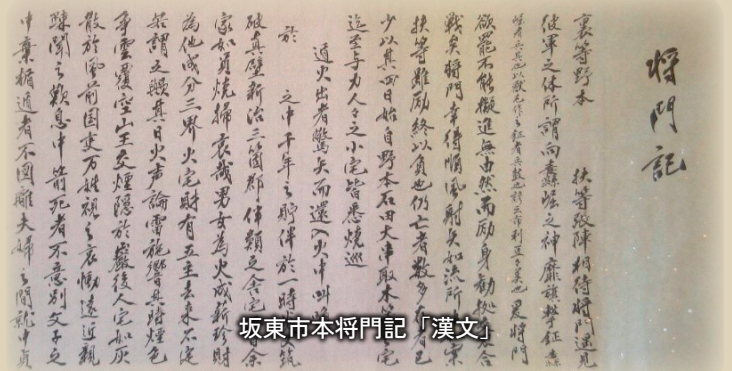 将門記
裏等野本 扶等張陣相待将門遥見
彼軍之体所謂向纛崛之神靡旗撃鉦
爰将門
欲罷不能擬進無由然而励身勧拠交刃合
戦矣将門幸得順風射矢如流所中案
扶等雖励終以負也仍亡者数多存者已
少以其四日始自野本石田大串取木等之宅
迄至与力人々之小宅皆悉焼巡
遁火出者驚矢而還入火中叫
於 之中千年之貯伴於一時炎筑
破真壁新治三箇郡伴類之舎宅 百余
家如員焼掃哀哉男女為火成薪珍財
為他成分三界火宅財有五主去来不定
若謂之歟其日火声論雷施響其時煙色
争雲覆空山王交煙隠於巌後人宅如灰
散於風前国吏万姓視之哀慟遠近親
疎聞之歎息中箭死者不意別父子之
中棄楯遁者不図離夫婦之間就中貞
坂東市本将門記「漢文」